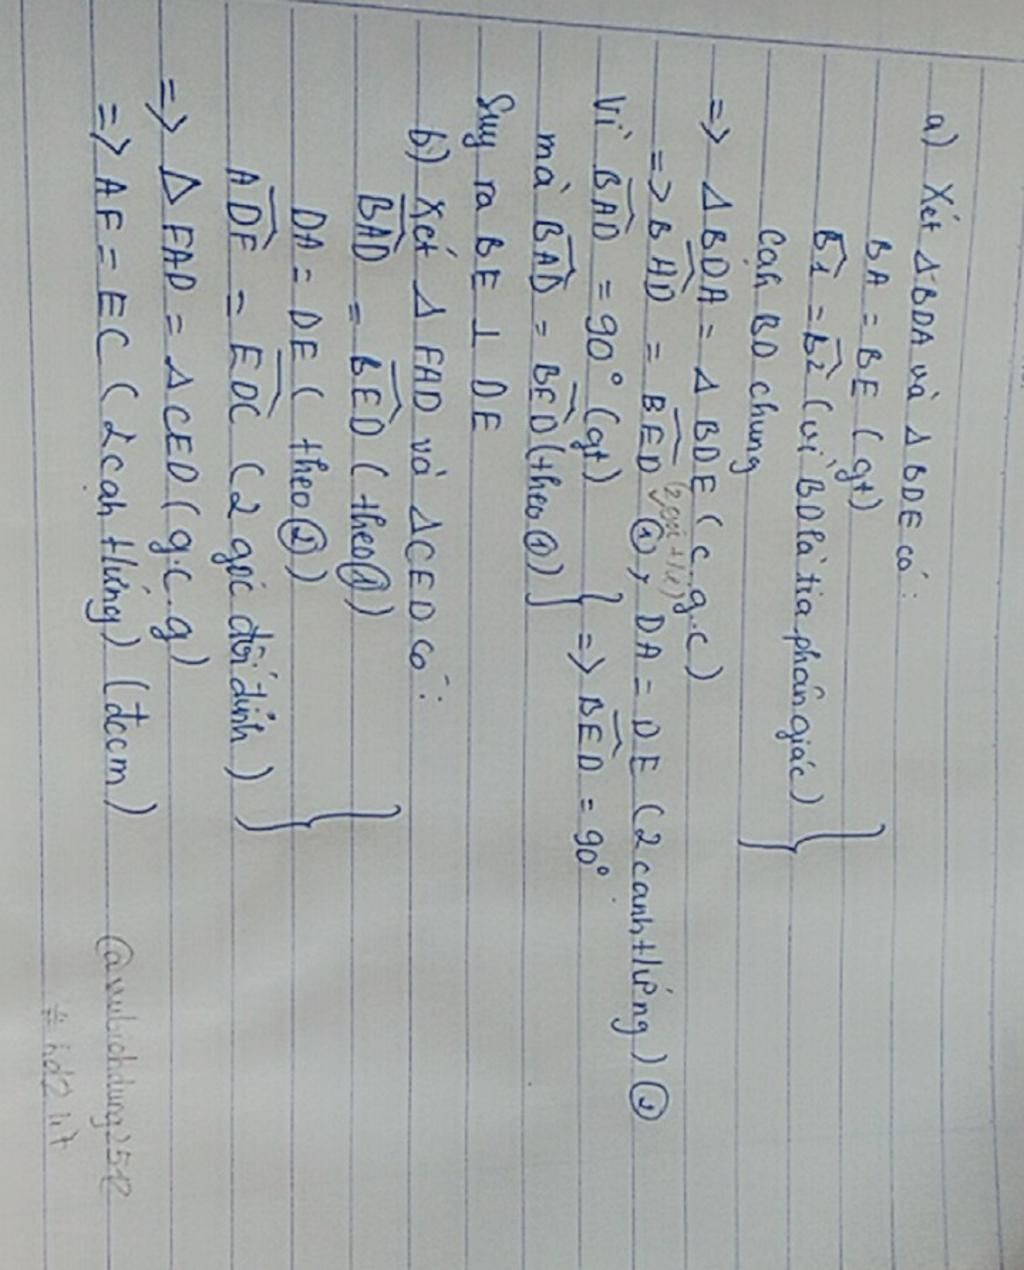 a) Xét Δ BDA và Δ BDE có:
BA = BE (gt)
B̂1 = B̂2 (vì BD là tia phân giác)
Cạh BD chung
=> Δ BDA = Δ BDE (c.g.c)
=> BÂD = BÊD (2 góc t/ư) ①, DA = DE (2 cạnh t/ứng) ②
Vì BÂD = 90° (gt)
mà BÂD = BÊD (theo ①) => BÊD = 90°
Suy ra BE ⊥ DE
b) Xét Δ FAD và Δ CED có:
BÂD = BÊD (theo ①)
DA = DE (theo ②)
AD̂F = ED̂C (2 góc đối đỉnh)
=> Δ FAD = Δ CED (g.c.g)
=> AF = EC (2 cạh t/ứng) (đccm)